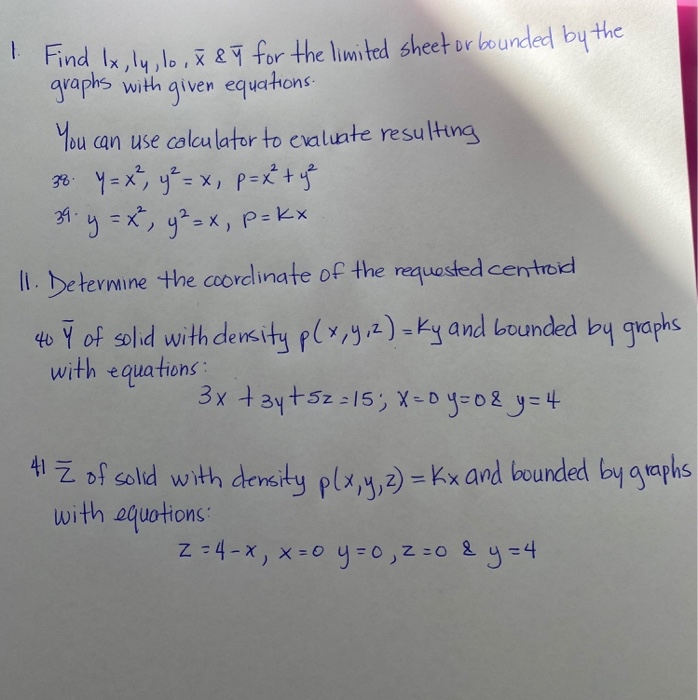 1. Find Ix, Iy, Io, x̄ & ȳ for the limited sheet or bounded by the
graphs with given equations.
You can use calculator to evaluate resulting
38. y = x², y² = x, ρ = x² + y²
39. y = x², y² = x, ρ = kx
11. Determine the coordinate of the requested centroid
40 ȳ of solid with density ρ(x,y,z) = Ky and bounded by graphs
with equations:
3x + 3y + 5z = 15; x = 0 y = 0 & y = 4
41 z̄ of solid with density ρ(x,y,z) = Kx and bounded by graphs
with equations:
z = 4 - x, x = 0 y = 0, z = 0 & y = 4